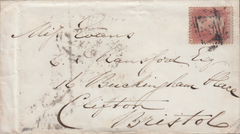 Miss Evans
E. C. Ransford Esq
16 Buckingham Place
Clifton
Bristol